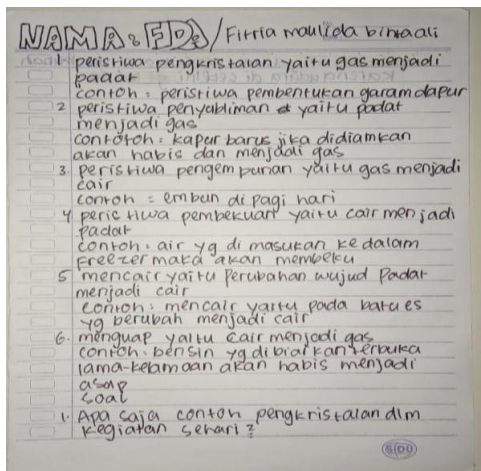 NAMA: FD2/Fitria maulida binta ali
1. peristiwa pengkristalan yaitu gas menjadi
padat
contoh: peristiwa pembentukan garam dapur
2 peristiwa penyubliman yaitu padat
menjadi gas
contotoh: kapur barus jika didiamkan
akan habis dan menjadi gas
3. peristiwa pengembunan yaitu gas menjadi
cair
contoh = embun di pagi hari
4 peristiwa pembekuan yaitu cair menjadi
padat
contoh: air yg di masukan ke dalam
Freezer maka akan membeku
5 mencair yaitu perubahan wujud padat
menjadi cair
contoh: mencair yaitu pada batu es
yg berubah menjadi cair
6. menguap yaitu cair menjadi gas
contoh. bensin yg dibiarkan terbuka
lama-kelamaan akan habis menjadi
asap
soal
1. Apa saja contoh pengkristalan dlm
kegiatan sehari?
SIDU